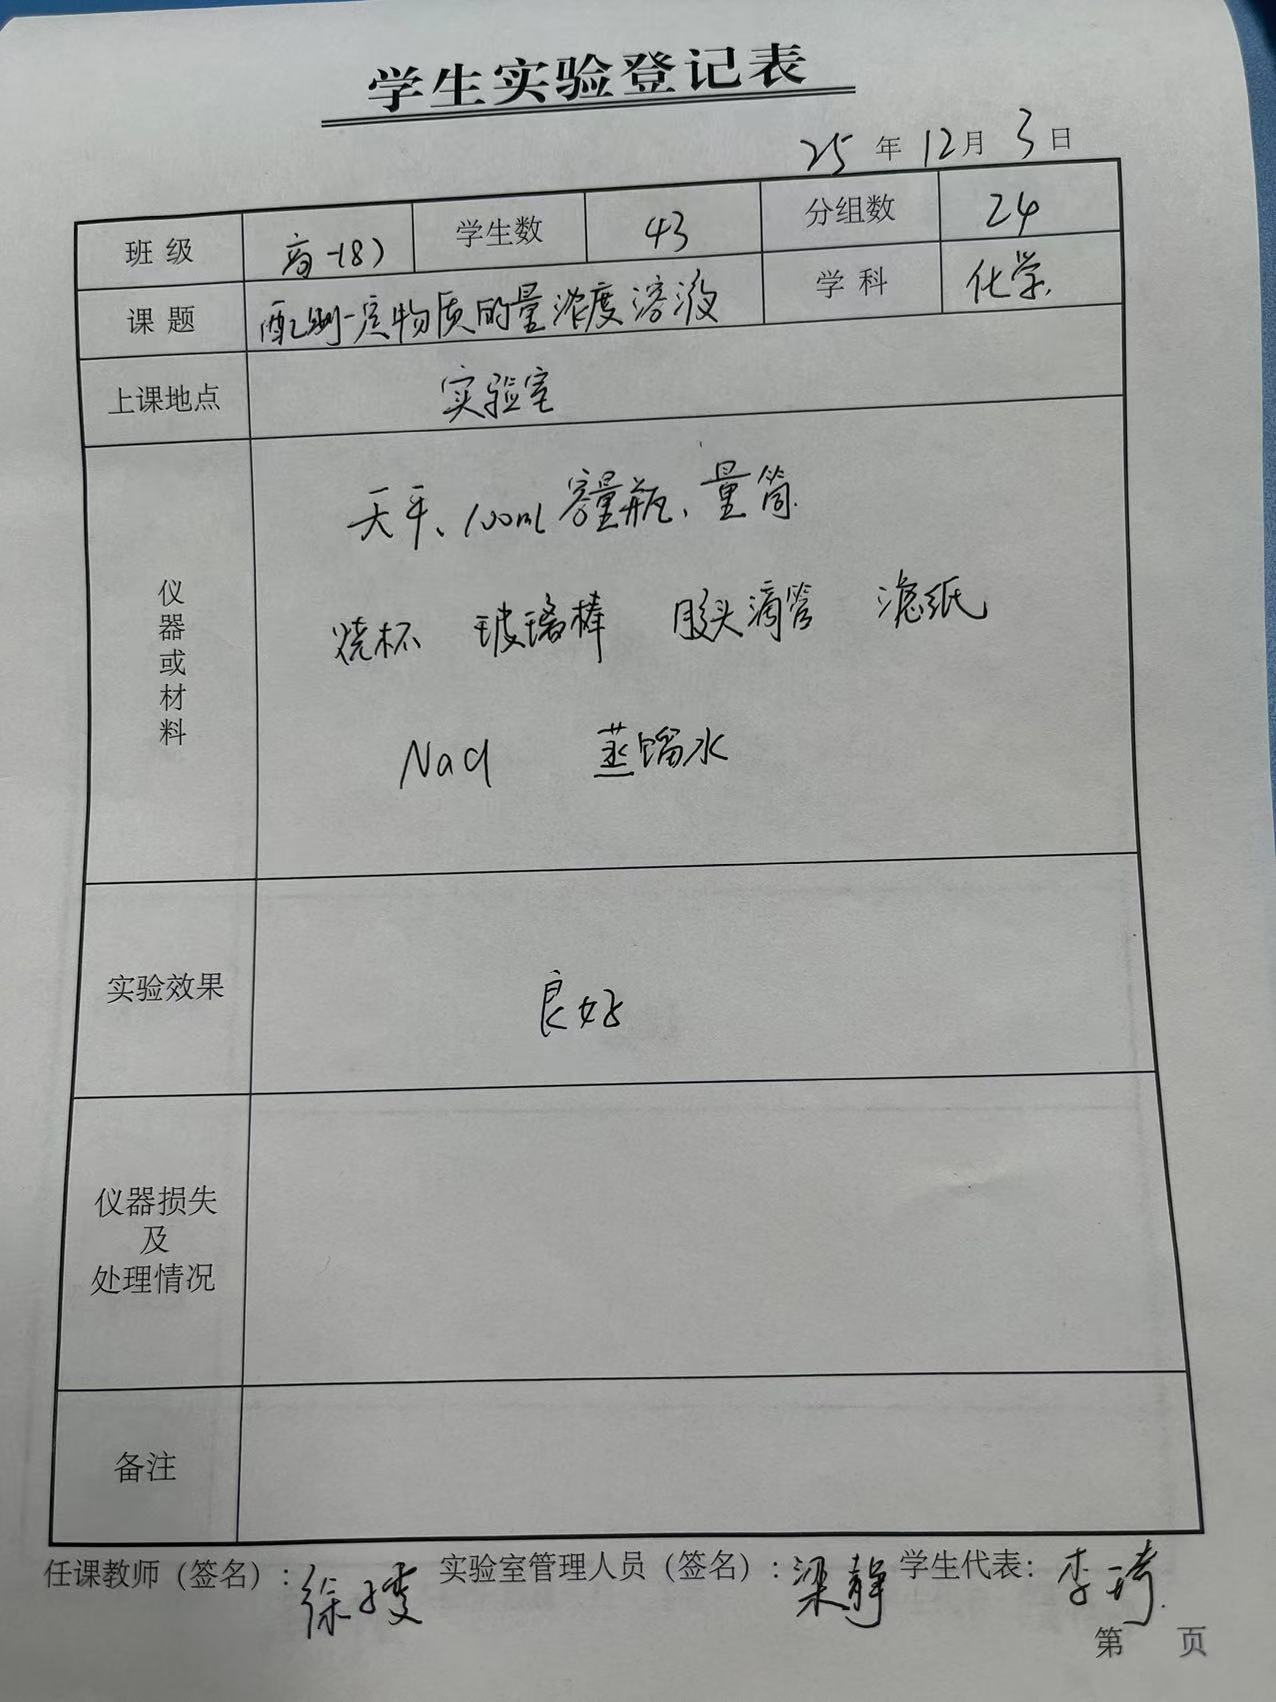 学生实验登记表
25年12月3日
班级 高一(8) 学生数 43 分组数 24
课题 配制一定物质的量浓度溶液 学科 化学.
上课地点 实验室
仪器或材料
天平、100ml容量瓶、量筒.
烧杯 玻璃棒 胶头滴管 滤纸
NaCl 蒸馏水
实验效果 良好
仪器损失
及
处理情况
备注
任课教师（签名）：徐子雯 实验室管理人员（签名）：梁静 学生代表：李琦.
第 页